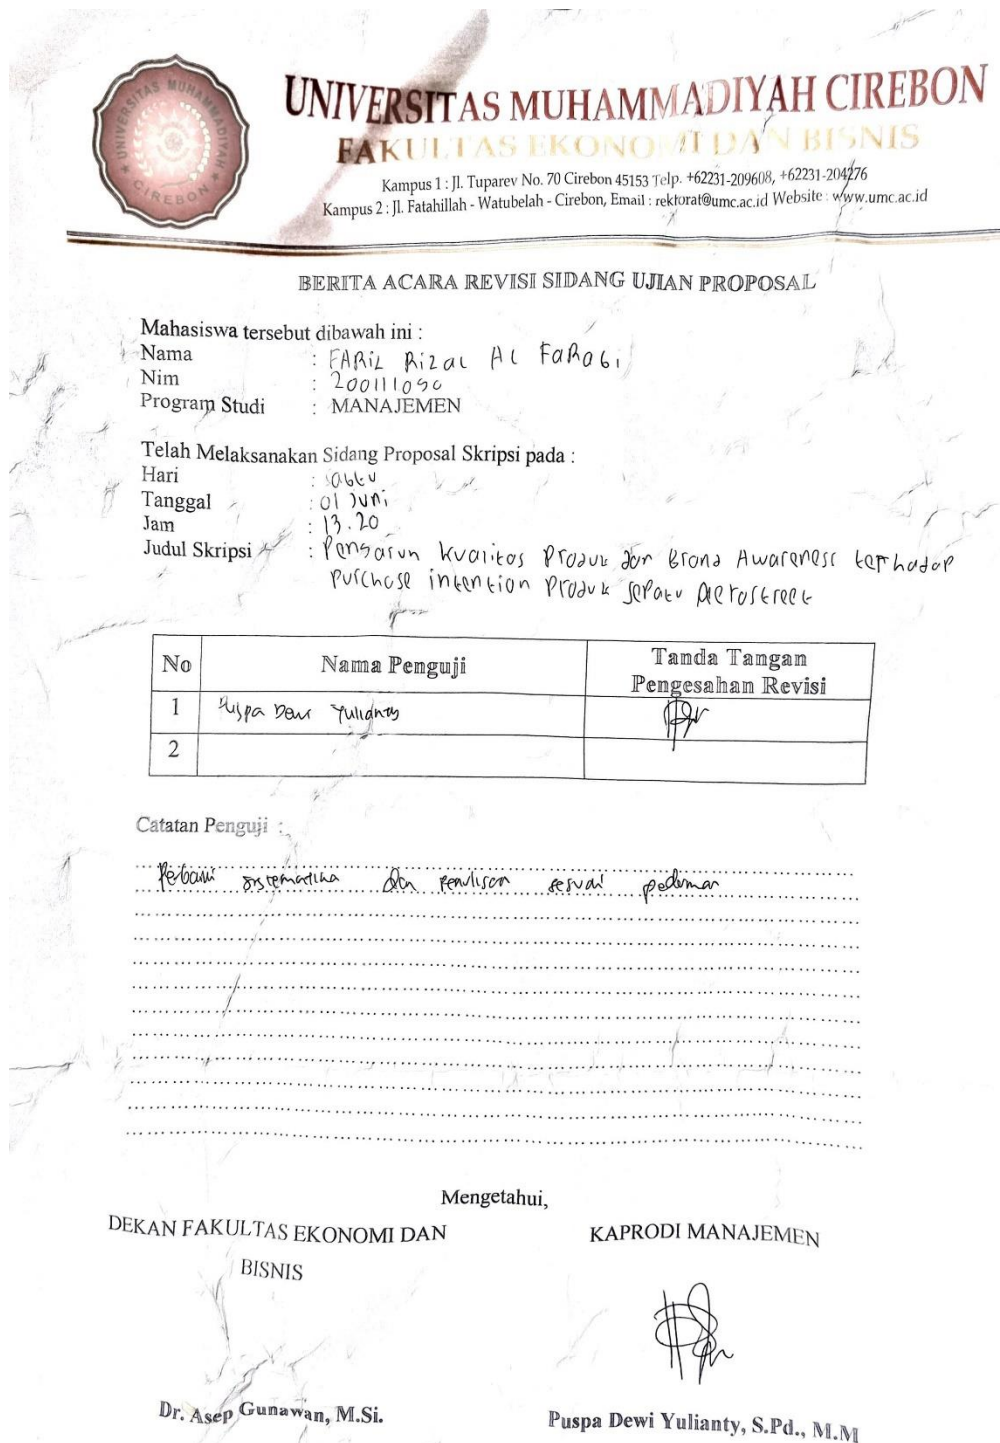 UNIVERSITAS MUHAMMADIYAH CIREBON
UNIVERSITAS MUHAMMADIYAH CIREBON
FAKULTAS EKONOMI DAN BISNIS
Kampus 1 : Jl. Tuparev No. 70 Cirebon 45153 Telp. +62231-209608, +62231-204276
Kampus 2 : Jl. Fatahillah - Watubelah - Cirebon, Email : rektorat@umc.ac.id Website : www.umc.ac.id
BERITA ACARA REVISI SIDANG UJIAN PROPOSAL
Mahasiswa tersebut dibawah ini :
Nama : FARIL Rizal Al FaRabi
Nim : 200111090
Program Studi : MANAJEMEN
Telah Melaksanakan Sidang Proposal Skripsi pada :
Hari : sabtu
Tanggal : 01 Juni
Jam : 13.20
Judul Skripsi : Pengaruh kualitas Produk dan Brand Awareness terhadap
purchase intention Produk sepatu Aerostreet
No Nama Penguji Tanda Tangan Pengesahan Revisi
1 Puspa Dewi Yulianty
2
Catatan Penguji :
Perbaiki sistematika dan penulisan sesuai pedoman
Mengetahui,
DEKAN FAKULTAS EKONOMI DAN BISNIS
KAPRODI MANAJEMEN
Dr. Asep Gunawan, M.Si.
Puspa Dewi Yulianty, S.Pd., M.M